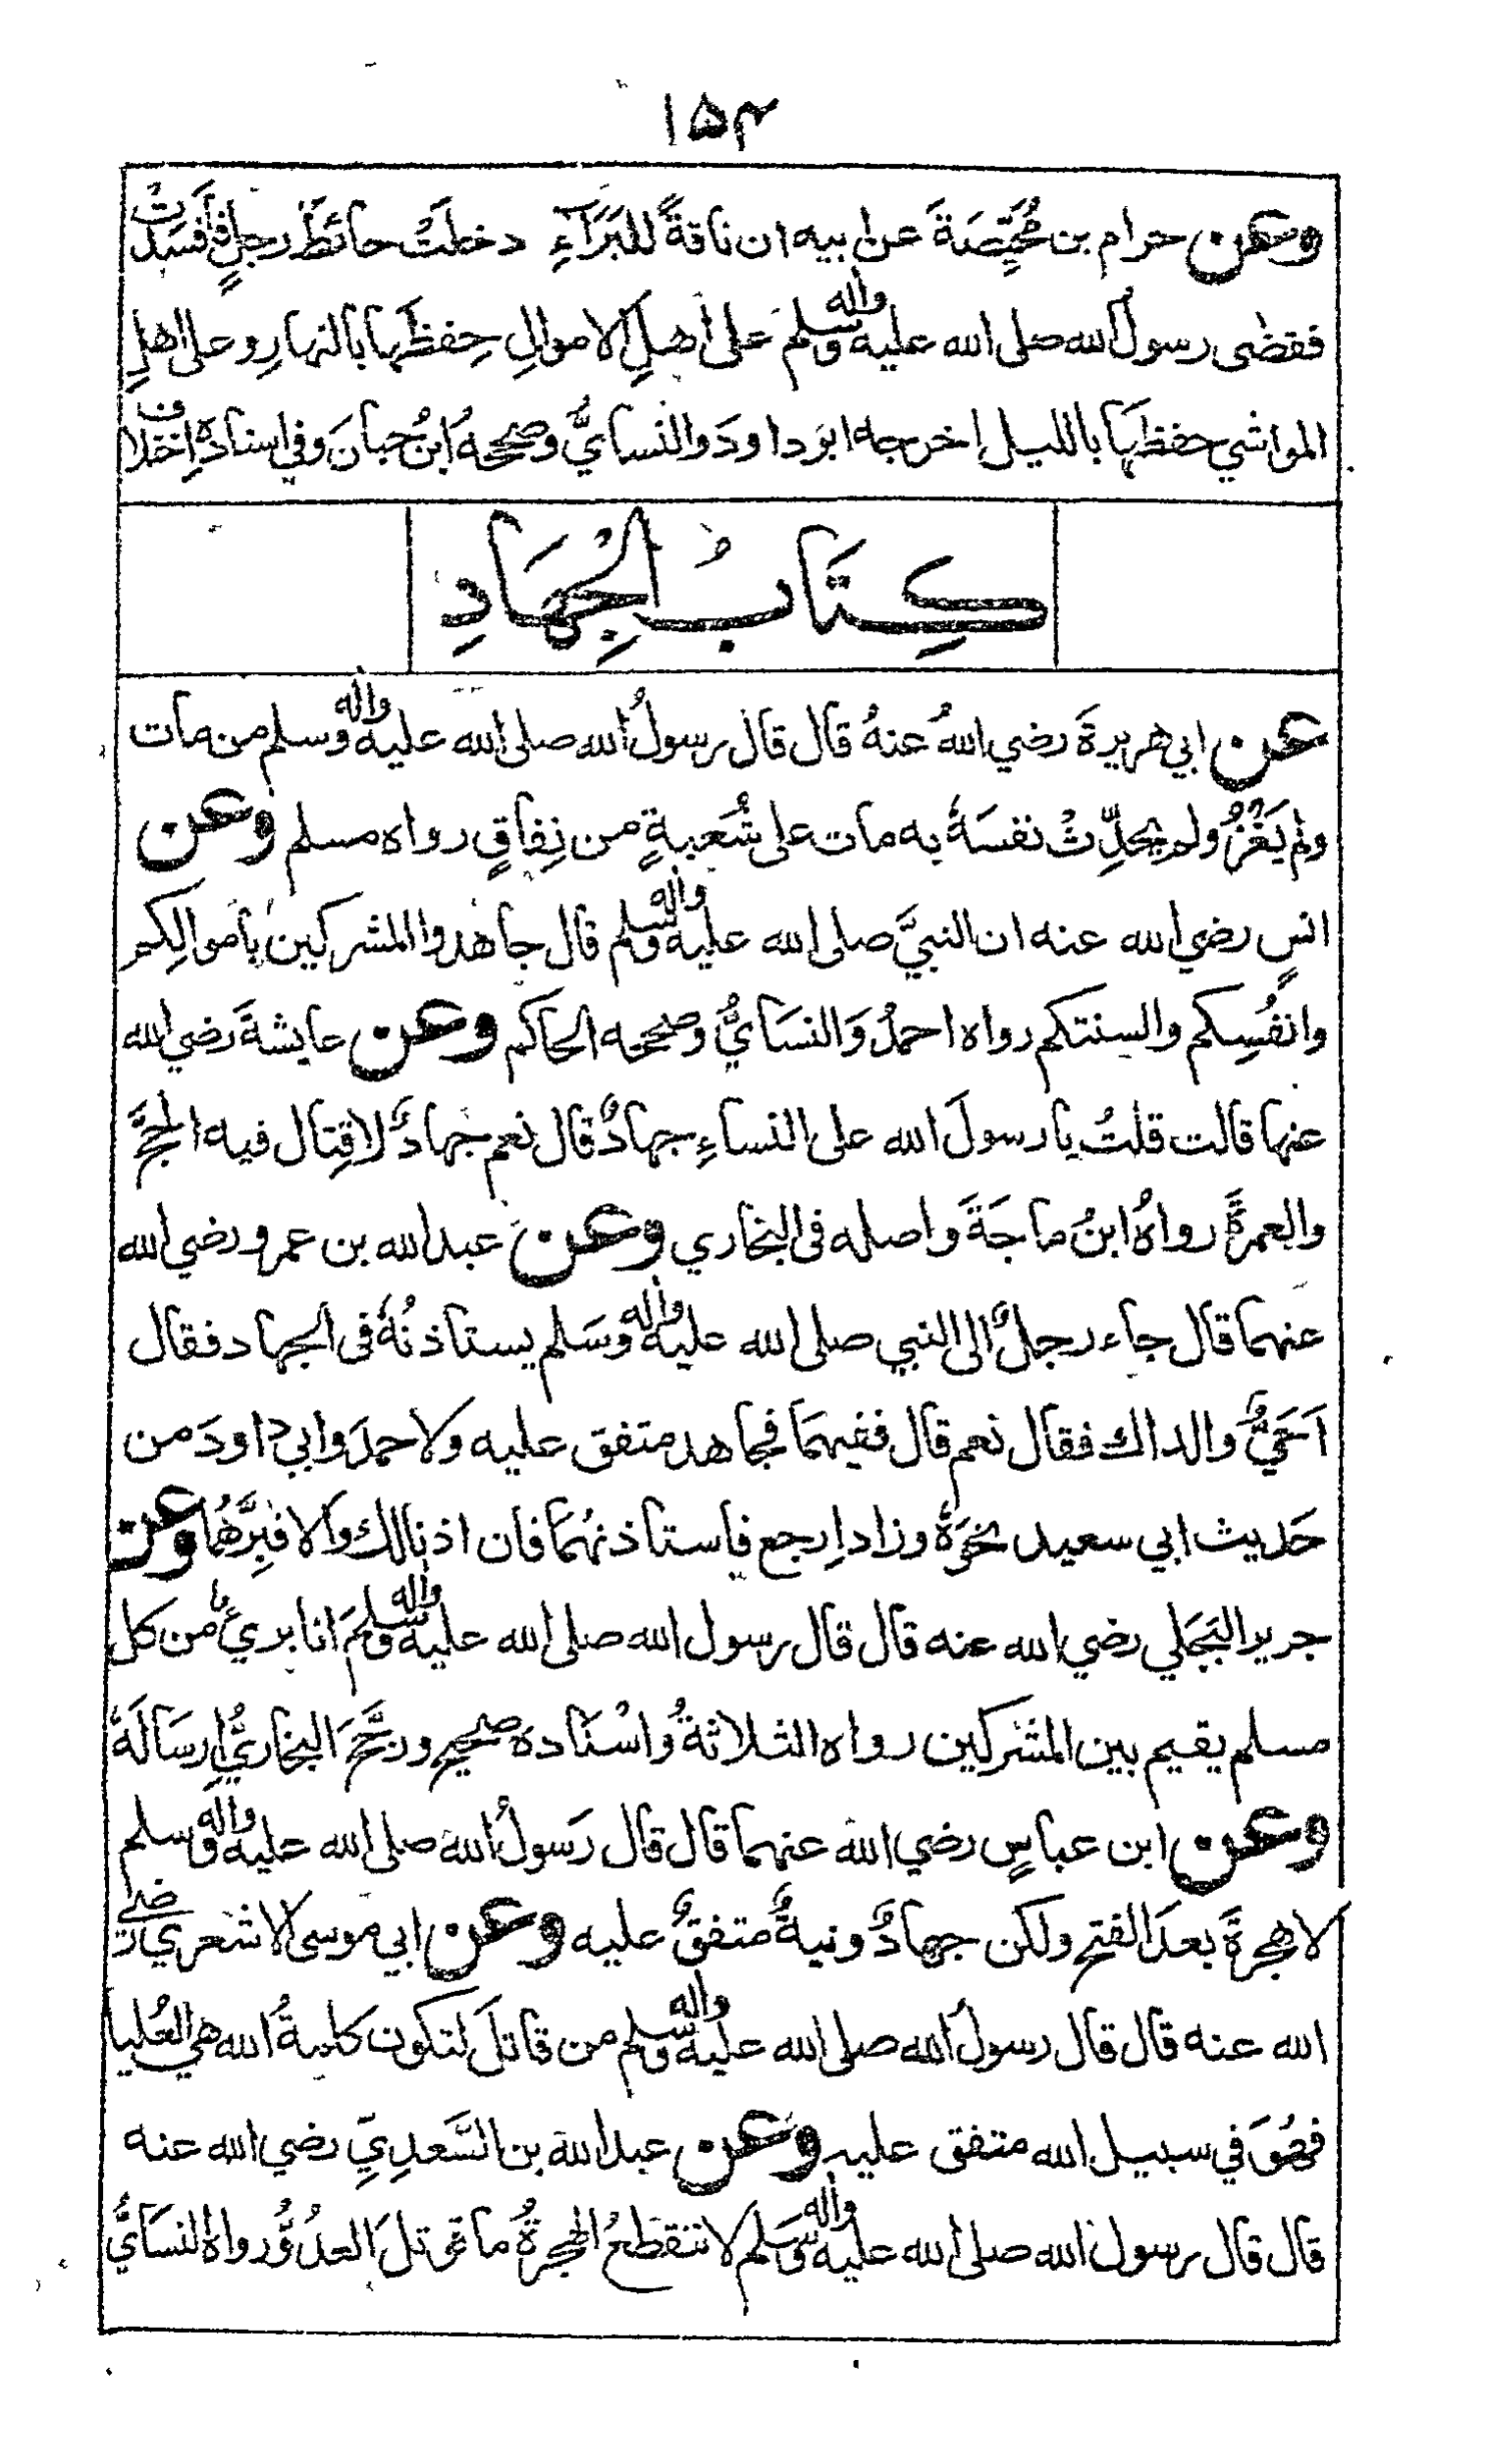 ۱۵۴
وعن حرام بن مُحَيِّصَةَ عن ابيه ان ناقةً للبَرَاءِ دخلَتْ حائطَ رجلٍ فافسَدَتْ
فقضى رسولُ الله صلى الله عليه واله وسلم على اهلِ الاموالِ حِفظَها بالنهارِ وعلى اهلِ
المواشي حفظَها بالليل اخرجه ابو داودَ والنسايُّ وصححهُ ابنُ حبانَ وفي اسنادِه اِختلاف
كِتَابُ الْجِهَادِ
عن ابي هريرةَ رضي اللهُ عنهُ قال قال رسولُ الله صلى الله عليه واله وسلم من مات
ولم يَغْزُ ولم يحدِّثْ نفسَهُ به مات على شُعبةٍ من نِفاقٍ رواه مسلم وعن
انسٍ رضي الله عنه ان النبيَّ صلى الله عليه واله وسلم قال جاهدوا المشركين بأموالِكم
وانفُسِكم والسنتكم رواه احمدُ وَالنسَايُّ وصححه الحاكم وعن عايشةَ رضي الله
عنها قالت قلتُ يا رسولَ الله على النساءِ جهادٌ قال نعم جهادٌ لا قِتال فيه الحجَّ
والعمرةَ رواهُ ابنُ ماجَةَ واصله فى البخاري وعن عبد الله بن عمرو رضي الله
عنهما قال جاء رجلٌ الى النبي صلى الله عليه واله وسَلم يستاذنُهُ فى الجهاد فقال
اَحَيٌّ والداك فقال نعم قال ففيهمَا فجاهد متفق عليه ولاحمدَ وابي داودَ من
حَديث ابي سعيد نحوَهُ وزاد اِرجع فاستاذنهُمَا فان اذنالك والا فبِرَّهُما وعن
جرير البَجَلي رضي الله عنه قال قال رسول الله صلى الله عليه واله وسلمَ انا بريٌ من كل
مسلم يقيم بين المشركين رواه الثلاثةُ واسْنَاده صحيح ورجَّحَ البخاريُّ اِرسَالَهُ
وعن ابن عباسٍ رضي الله عنهما قال قال رَسولُ الله صلى الله عليه واله وسلم
لا هجرةَ بعدَ الفتح ولكن جهادٌ ونيةٌ متفقٌ عليه وعن ابي موسى الاشعري رضي
الله عنه قال قال رسولُ الله صلى الله عليه واله وسلم من قاتلَ لتكون كلمةُ الله هي العُليا
فهُوَ في سبيل الله متفق عليه وعن عبد الله بن السَّعدِيِّ رضي الله عنه
قال قال رسولُ الله صلى الله عليه واله وسَلم لا تنقطعُ الهجرةُ ما قوتلَ العدُوُّ رواه النسَايُّ